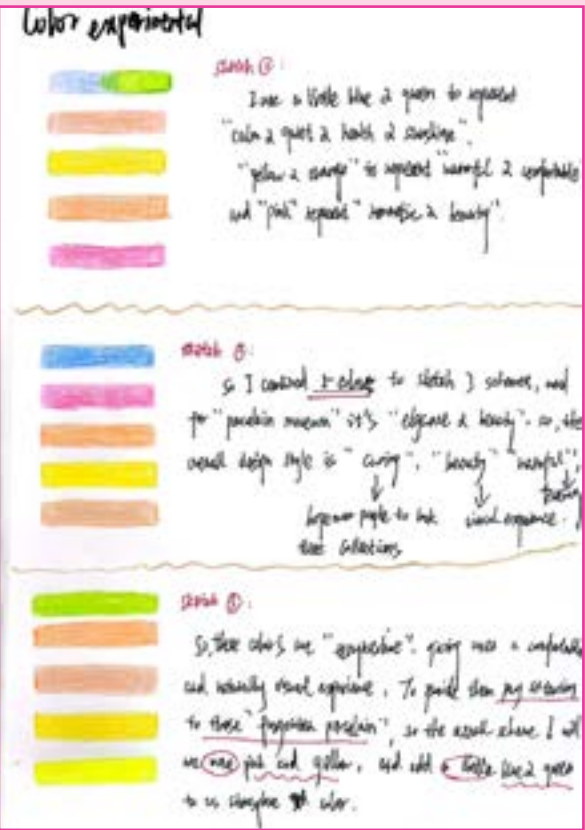 Color experimental
sketch ①:
I use a little blue & green to represent
"calm & quiet & health & sunshine".
"yellow & orange" to represent "warmful & comfortable
and "pink" represent "romantic & beauty".
sketch
so I 5 colors to sketch 3 schemes, and
for "porcelain museum" it's "elegance & beauty". so, the
overall design style is "curing", "beauty" "warmful",
more people to look visual experience.
these collections
sketch
So, these colors are giving users a comfortable
and visual experience. To guide them pay attention
to these "forgotten porcelain", so the where I will
use more pink and yellow, and add a little blue & green
to as color.